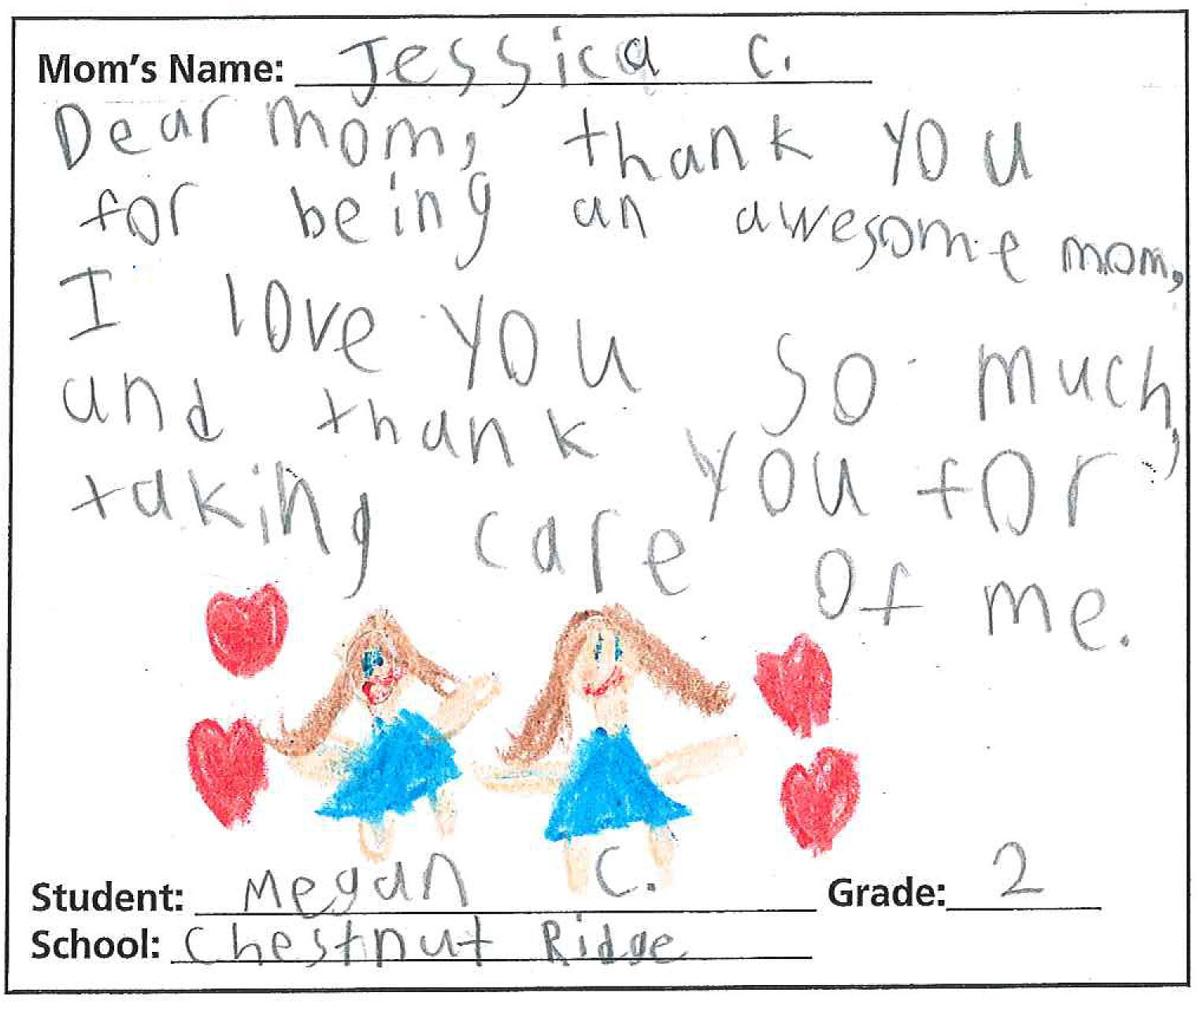 Mom's Name: Jessica C.
Dear mom, thank you
for being an awesome mom,
I love you so much,
and thank you for
taking care of me.
Student: Megan C. Grade: 2
School: Chestnut Ridge